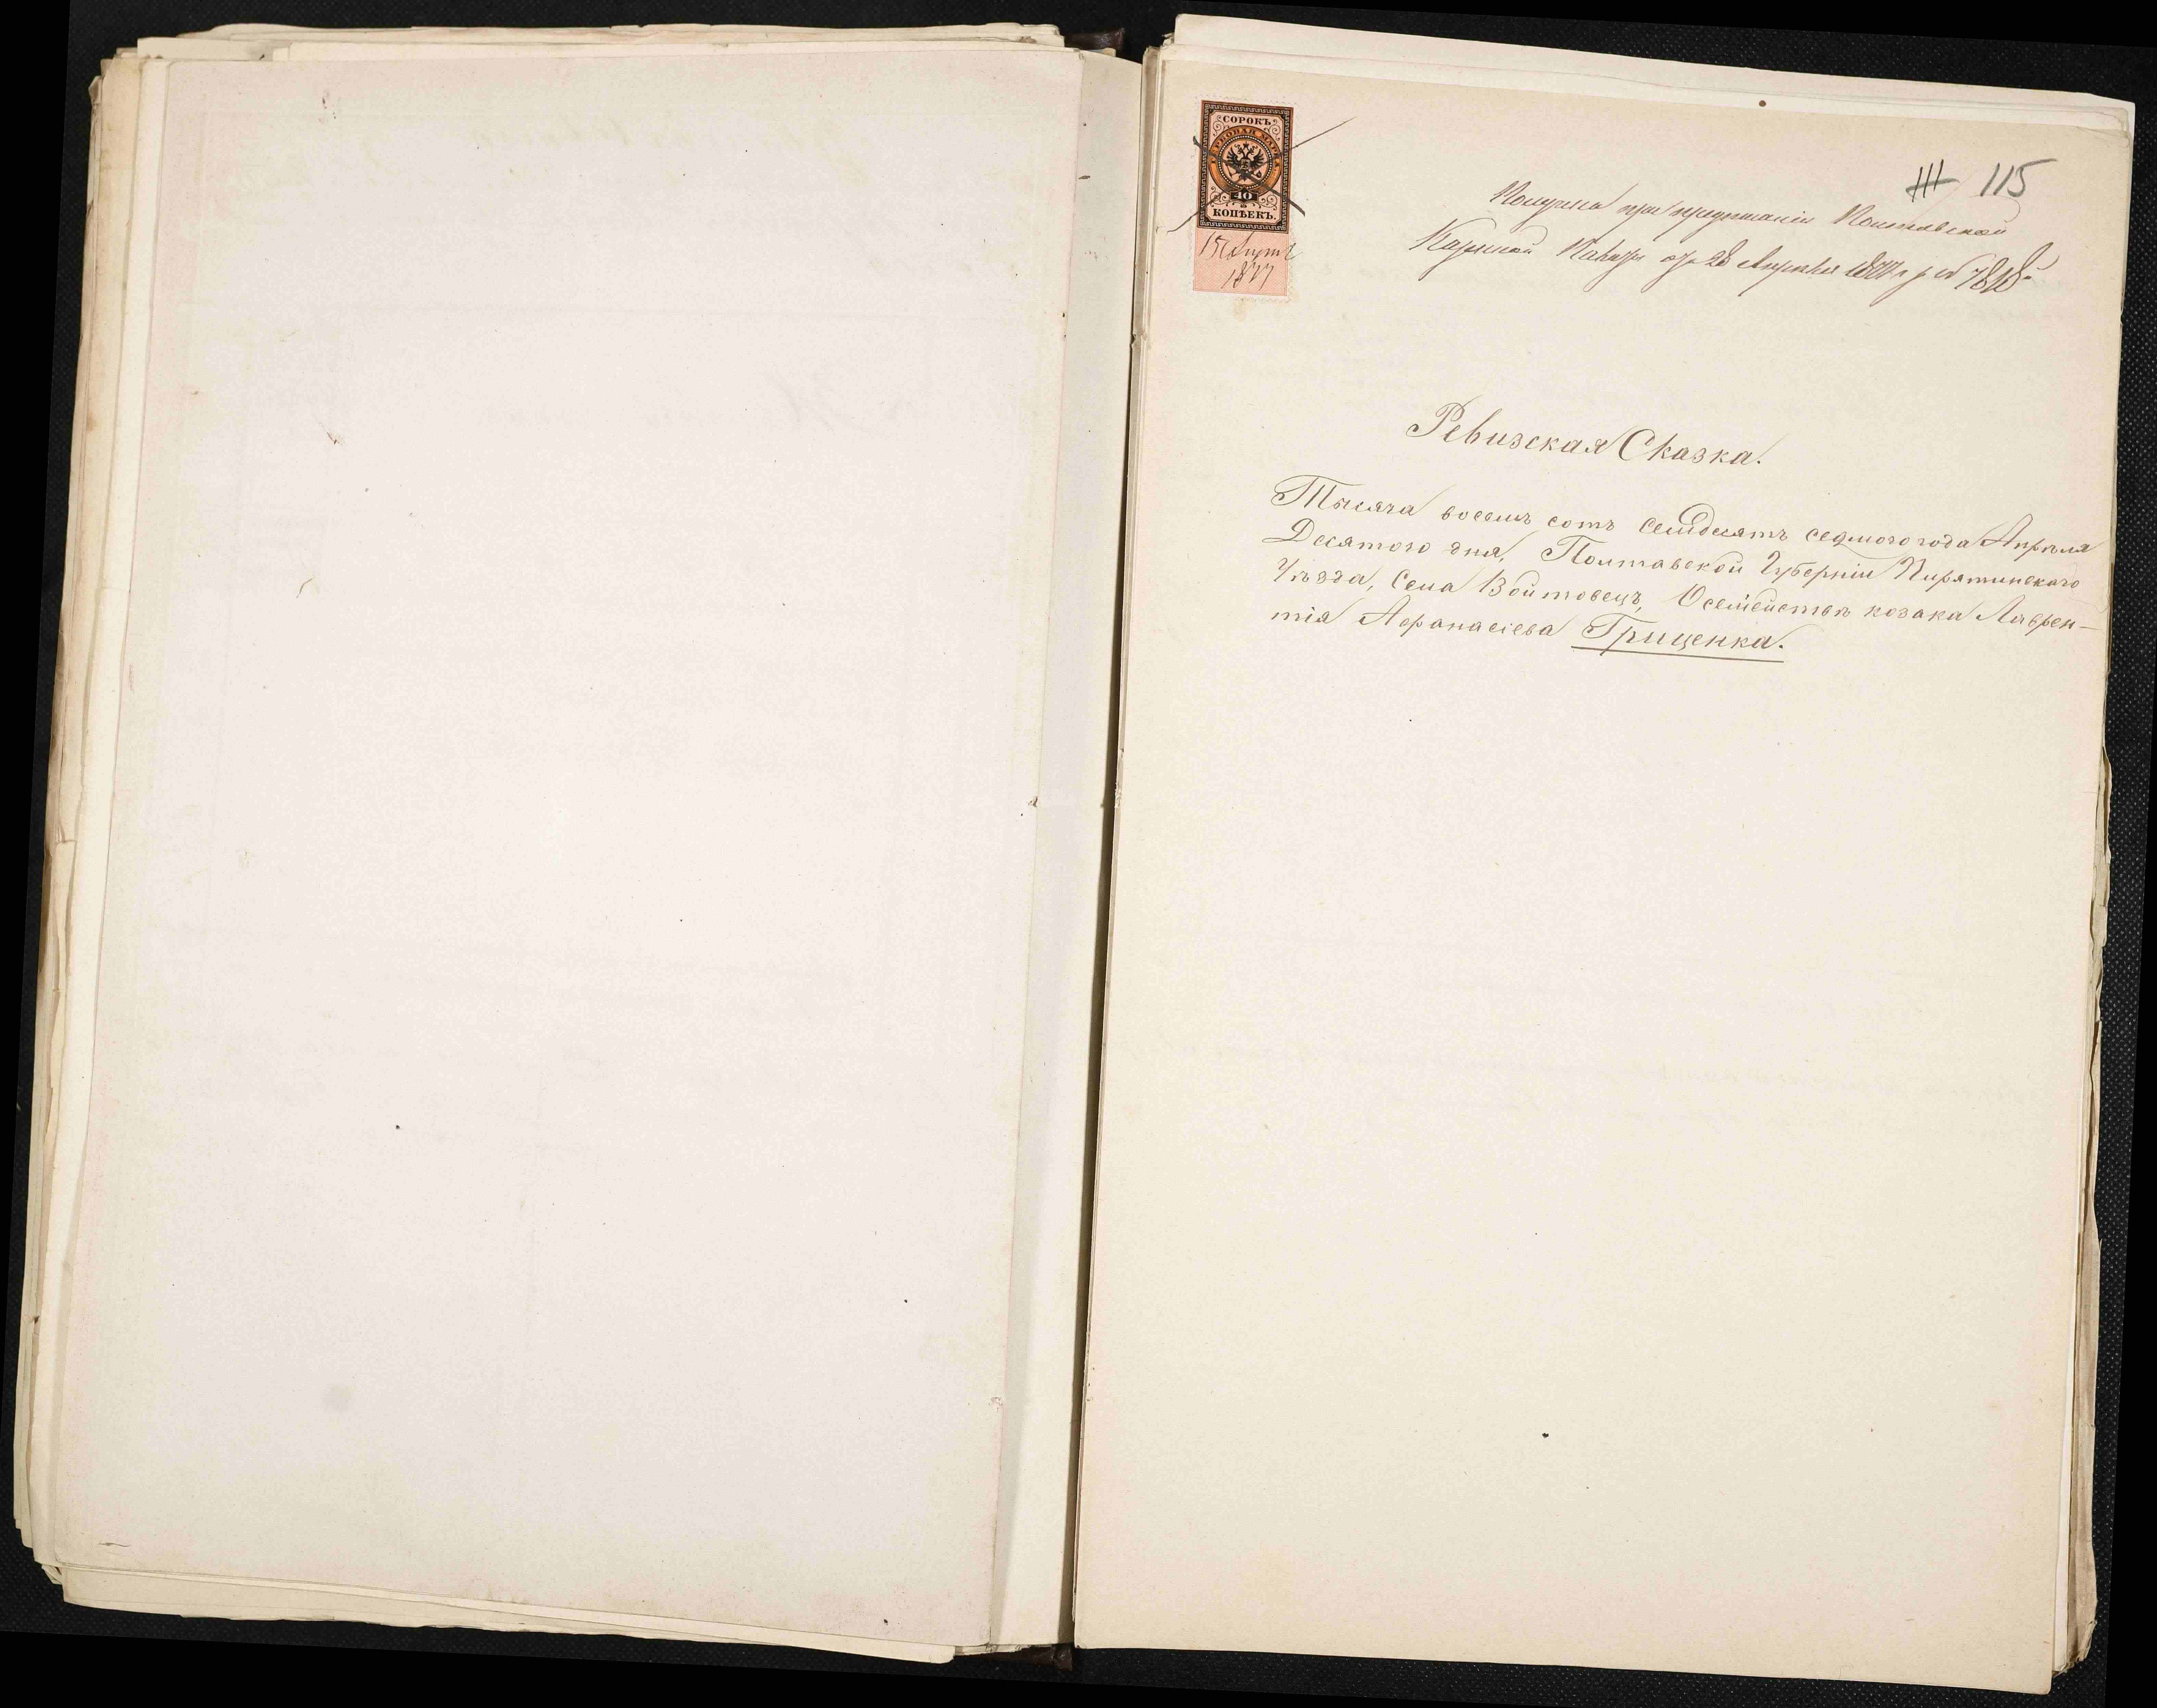 СОРОКЪ
ГЕРБОВАЯ МАРКА
40
КОПѢЕКЪ.
1877
111 115
Получена при предписаніи Полтавской
Казенной Палаты отъ 28 Апрѣля 1877 г за № 7818
Ревизская Сказка.
Тысяча восемъ сотъ семьдесятъ седмого года Апрѣля
Десятого дня, Полтавской Губерніи Пирятинскаго
Уѣзда, Села Войтовецъ, О семействѣ козака Лаврен-
тія Афанасіева Гриценка.